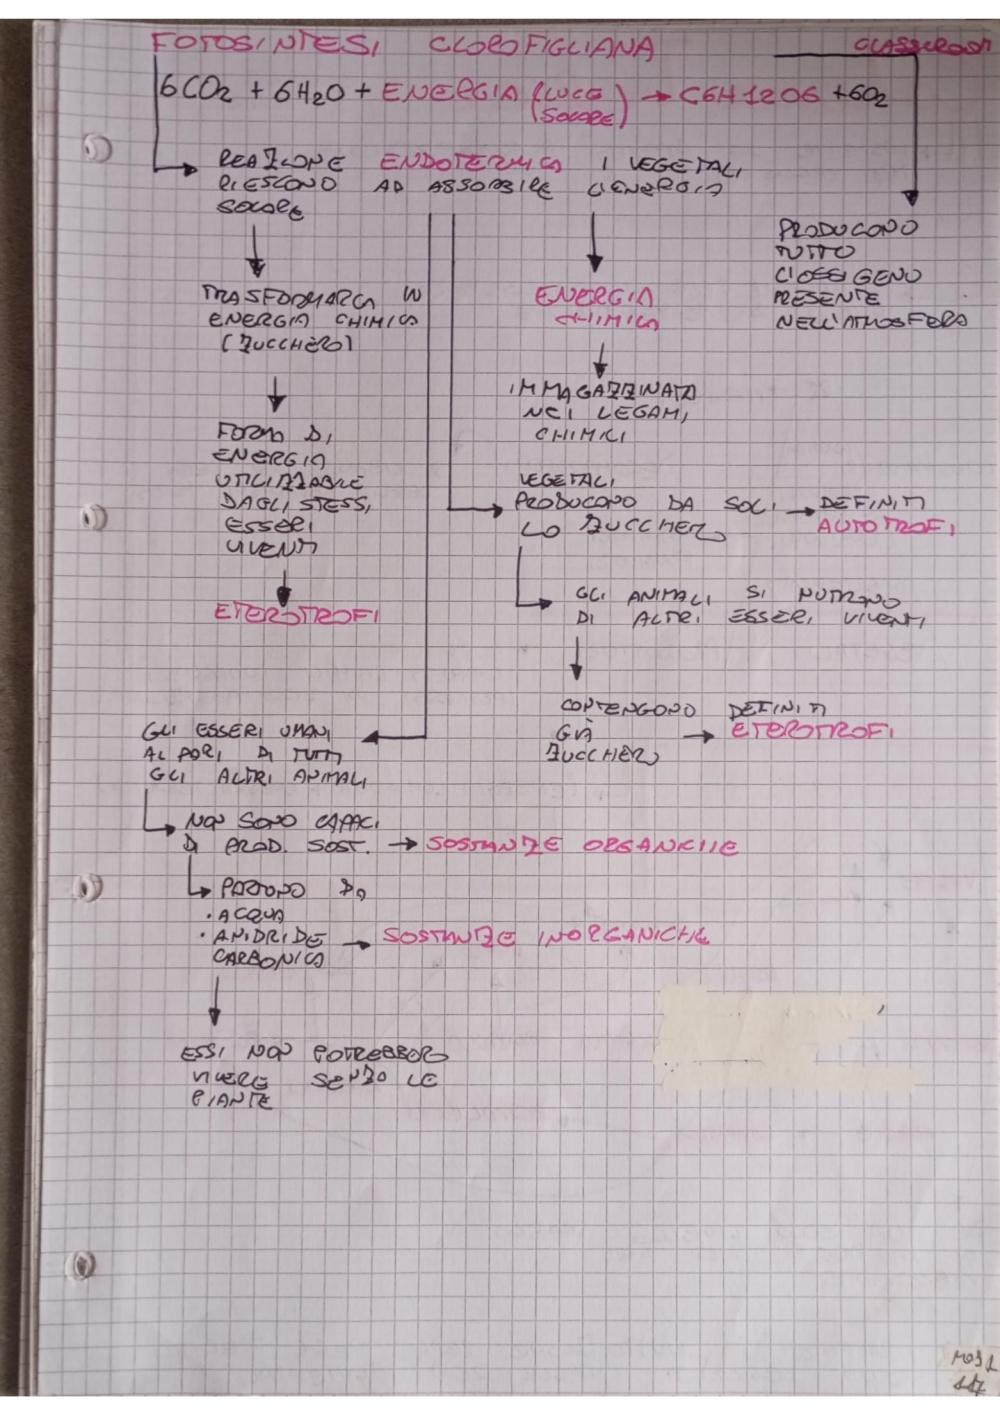 FOTOSINTESI CLOROFIGLIANA CLASSROOM
6CO2 + 6H2O + ENERGIA (LUCE SOLARE) → C6H12O6 + 6O2
REAZIONE ENDOTERMICA I VEGETALI
RIESCONO AD ASSORBIRE L'ENERGIA
SOLARE
PRODUCONO
TUTTO
L'OSSIGENO
PRESENTE
NELL'ATMOSFERA
TRASFORMARLA IN
ENERGIA CHIMICA
(ZUCCHERO)
ENERGIA
CHIMICA
IMMAGAZZINATA
NEI LEGAMI
CHIMICI
FORMA DI
ENERGIA
UTILIZZABILE
DAGLI STESSI
ESSERI
VIVENTI
ETEROTROFI
VEGETALI
PRODUCONO DA SOLI → DEFINITI
LO ZUCCHERO AUTOTROFI
GLI ANIMALI SI NUTRONO
DI ALTRI ESSERI VIVENTI
CONTENGONO DEFINITI
GIÀ → ETEROTROFI
ZUCCHERO
GLI ESSERI UMANI
AL PARI DI TUTTI
GLI ALTRI ANIMALI
NON SONO CAPACI
DI PROD. SOST. → SOSTANZE ORGANICHE
PARTONO DA
• ACQUA
• ANIDRIDE → SOSTANZE INORGANICHE
CARBONICA
ESSI NON POTREBBERO
VIVERE SENZA LE
PIANTE